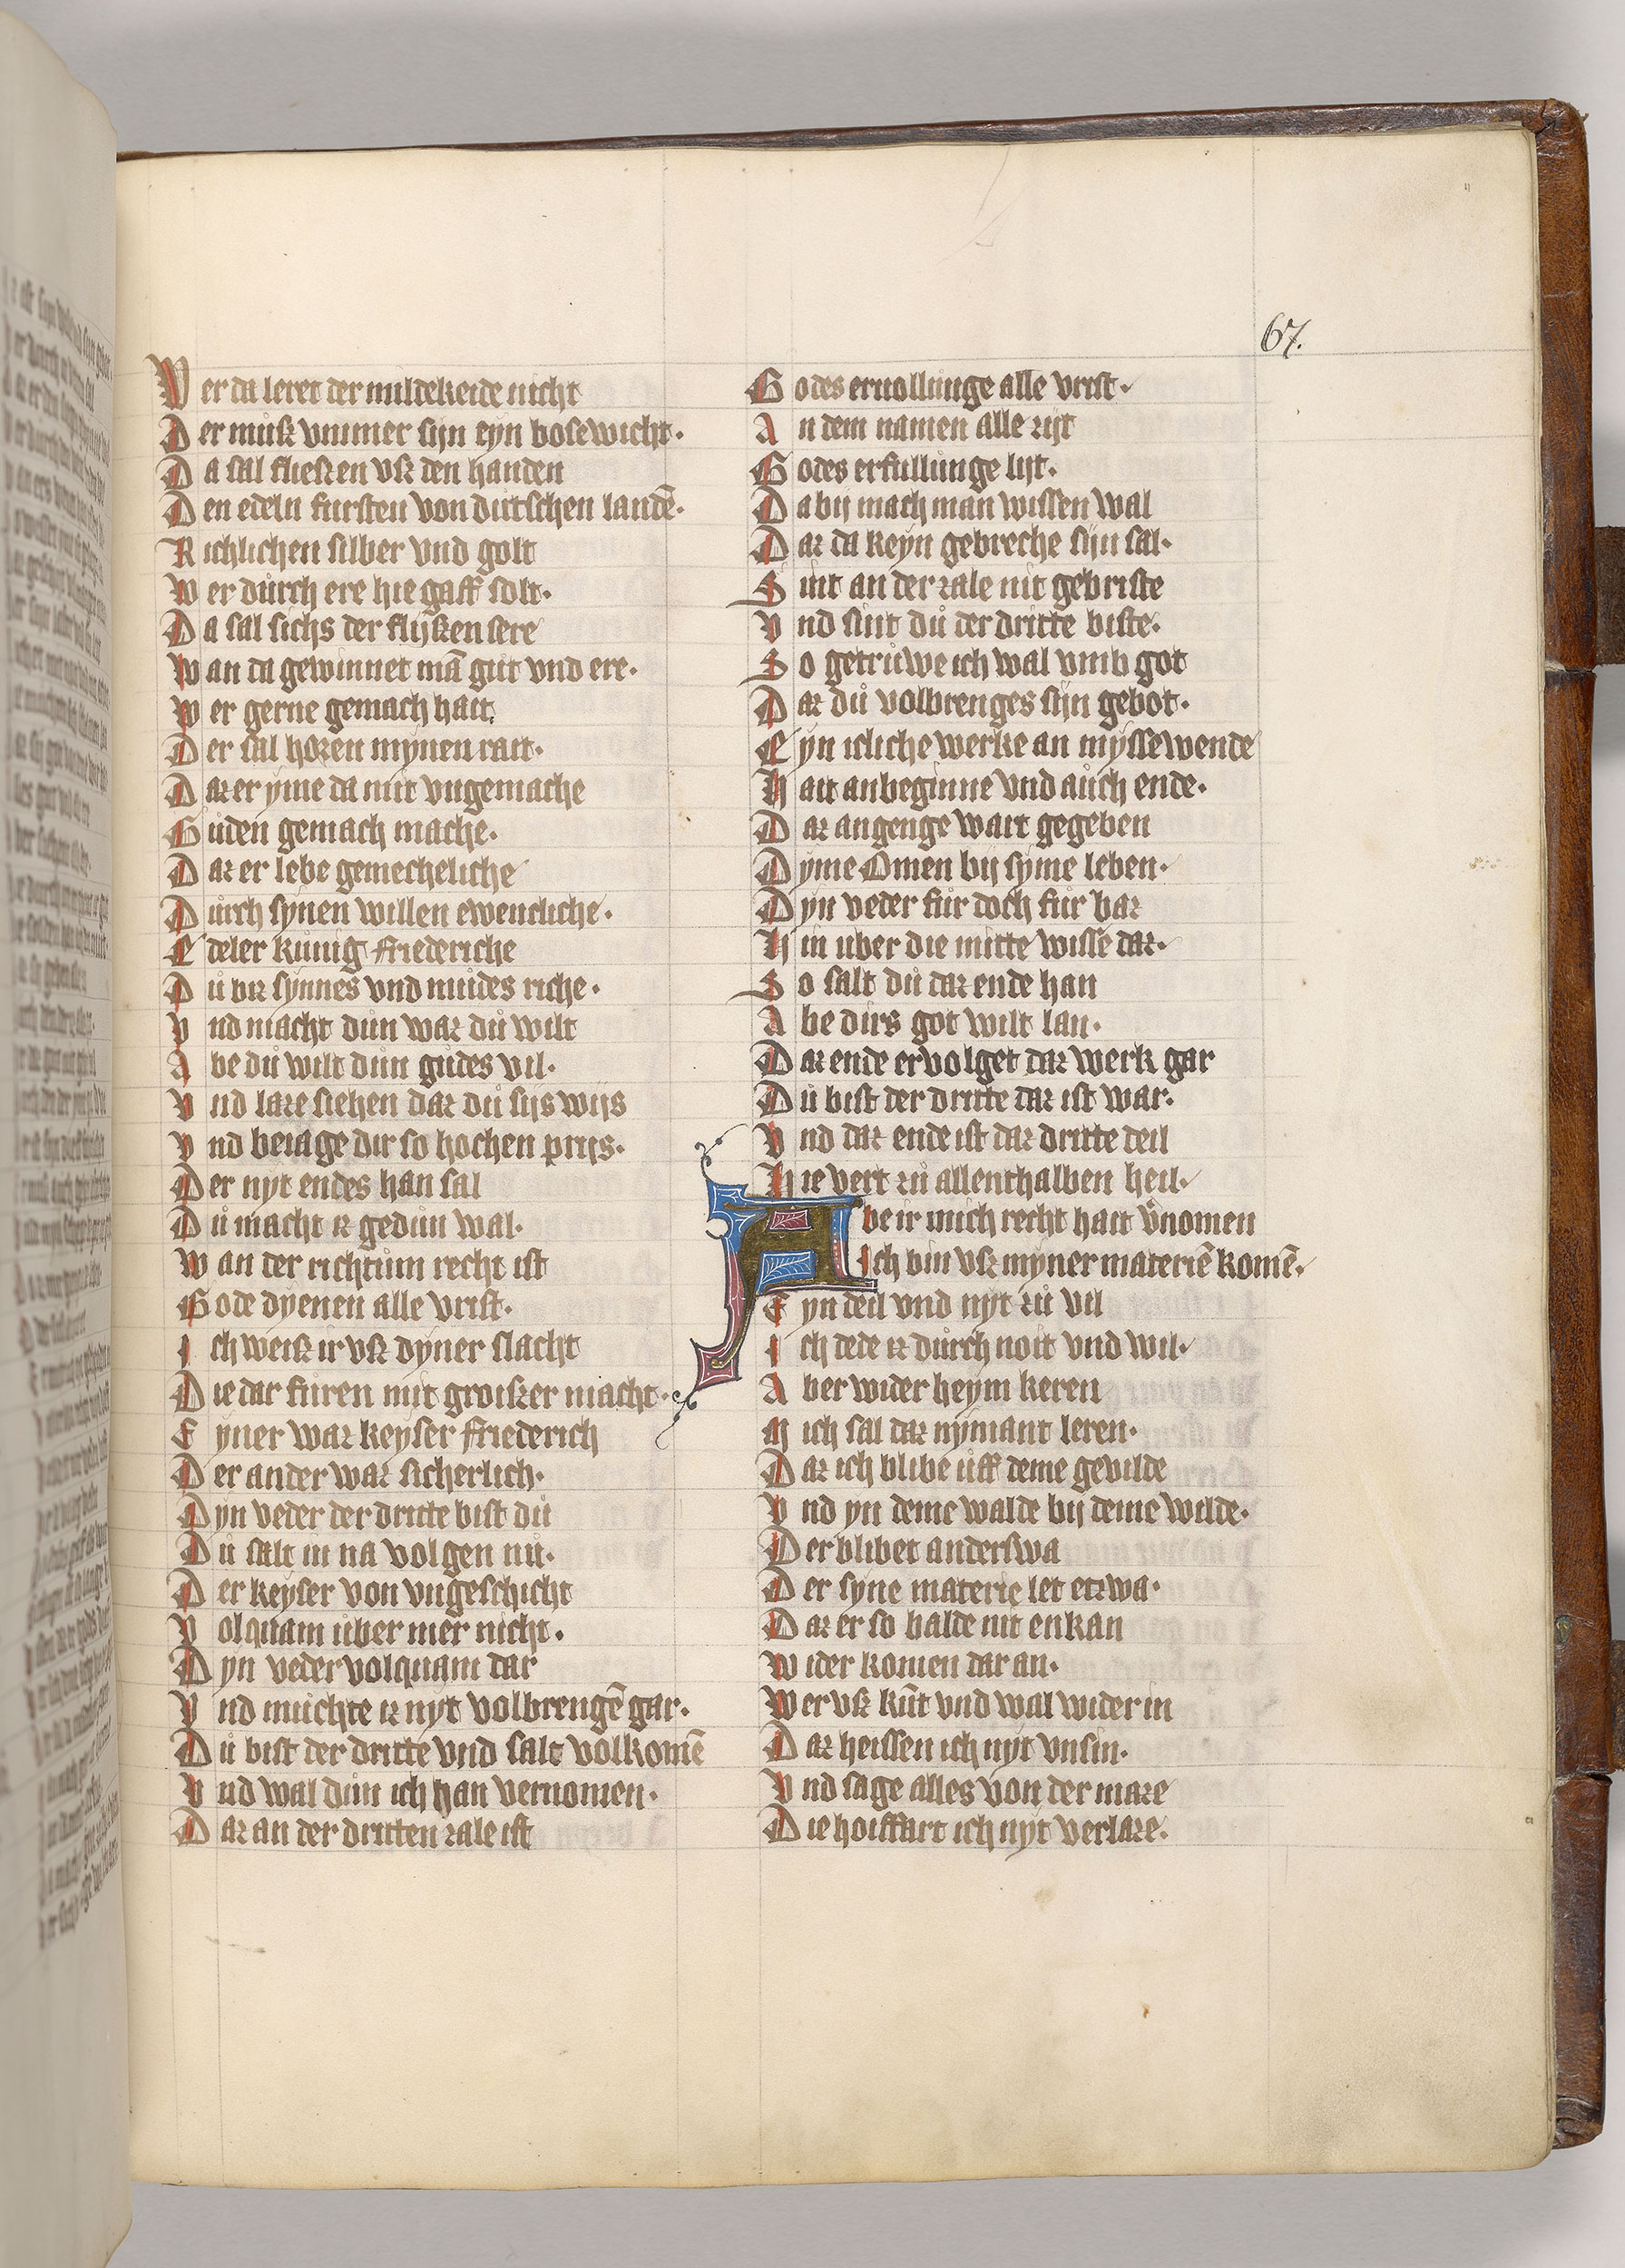 67.
Wer da leret der mildekeide nicht
Der muſz vmmer sijn eyn bosewicht·
Da sal flieszen vsz den handen
Den edeln fursten von dutschen landē·
Richlichen silber vnd golt
Wer důrch ere hie gaff solt·
Da sal sichs der flijszen sere
Wan da gewinnet mā gůt vnd ere·
Wer gerne gemach hatt
Der sal horen mynen ratt·
Daz er yme da mit vngemache
Gůden gemach mache·
Daz er lebe gemecheliche
Důrch synen willen ewencliche·
Edeler kůnig friederiche
Dů bis synnes vnd můdes riche·
Vnd macht důn waz dů wilt
Abe dů wilt důn gůdes vil·
Vnd laze siehen daz dů sijs wijs
Vnd beiage dir so hochen prijs·
Der nyt endes han sal
Dů macht iz gedůn wal·
Wan der richtům recht ist
Gode dyenen alle vrist·
Ich weisz ir vsz dyner slacht
Die dar fůren mit groiszer macht·
Eyner waz keyser friederich
Der ander waz sicherlich·
Dyn veder der dritte bist dů
Dů salt in na volgen nů·
Der keyser von vngeschicht
Volquam ůber mer nicht·
Dyn veder volquam dar
Vnd můchte iz nyt volbrengē gar·
Dů bist der dritte vnd salt volkomē
Vnd wal důn ich han vernomen·
Daz an der dritten zale ist
Godes ervollůnge alle vrist·
An dem namen alle zijt
Godes erfullůnge lijt·
Da bij mach man wissen wal
Daz da keyn gebreche sijn sal·
Sint an der zale nit gebriste
Vnd sint dů der dritte biste·
So getrůwe ich wal vmb got
Daz dů volbrenges sijn gebot·
Eyn icliche werke an myssewende
Hatt anbeginne vnd aůch ende·
Daz angenge wart gegeben
Dyme Omen bij syme leben·
Dyn veder fůr doch fůr baz
Hin uber die mitte wisse daz·
So salt dů daz ende han
Abe dirs got wilt lan·
Daz ende ervolget daz werk gar
Dů bist der dritte daz ist war·
Vnd daz ende ist daz dritte deil
Hie vert zů allenthalben heil·
Abe ir mich recht hatt v̄nomen
Ich bin vsz myner materiē komē·
Eyn deil vnd nyt zů vil
Ich dede iz důrch noit vnd wil·
Aber wider heym keren
Mich sal daz nymant leren·
Daz ich blibe ůff deme gevilde
Vnd yn deme walde bij deme wilde·
Der blibet anderswa
Der syne materie let etzwa·
Daz er so balde nit enkan
Wider komen dar an·
Wer vsz kūt vnd wal wider in
Daz heissen ich nyt vnsin·
Vnd sage alles von der maze
Die hoiffart ich nyt verlaze·